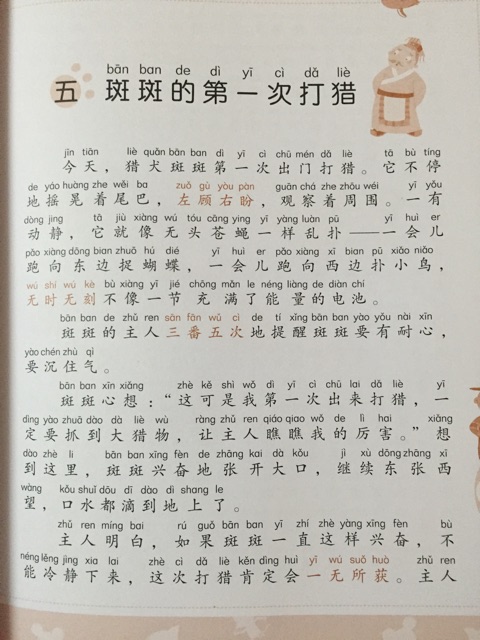 bān ban de dì yī cì dǎ liè
五 斑斑的第一次打猎
jīn tiān liè quǎn bān ban dì yī cì chū mén dǎ liè tā bù tíng
今天，猎犬斑斑第一次出门打猎。它不停
de yáo huàng zhe wěi ba zuǒ gù yòu pàn guān chá zhe zhōu wéi yī yǒu
地摇晃着尾巴，左顾右盼，观察着周围。一有
dòng jìng tā jiù xiàng wú tóu cāng ying yī yàng luàn pū yī huì er
动静，它就像无头苍蝇一样乱扑——一会儿
pǎo xiàng dōng bian zhuō hú dié yī huì er pǎo xiàng xī bian pū xiǎo niǎo
跑向东边捉蝴蝶，一会儿跑向西边扑小鸟，
wú shí wú kè bù xiàng yī jié chōng mǎn le néng liàng de diàn chí
无时无刻不像一节充满了能量的电池。
bān ban de zhǔ ren sān fān wǔ cì de tí xǐng bān ban yào yǒu nài xīn
斑斑的主人三番五次地提醒斑斑要有耐心，
yào chén zhù qì
要沉住气。
bān ban xīn xiǎng zhè kě shì wǒ dì yī cì chū lai dǎ liè yī
斑斑心想：“这可是我第一次出来打猎，一
dìng yào zhuā dào dà liè wù ràng zhǔ ren qiáo qiao wǒ de lì hai xiǎng
定要抓到大猎物，让主人瞧瞧我的厉害。”想
dào zhè li bān ban xīng fèn de zhāng kai dà kǒu jì xù dōng zhāng xī
到这里，斑斑兴奋地张开大口，继续东张西
wàng kǒu shuǐ dōu dī dào dì shang le
望，口水都滴到地上了。
zhǔ ren míng bai rú guǒ bān ban yī zhí zhè yàng xīng fèn bù
主人明白，如果斑斑一直这样兴奋，不
néng lěng jìng xia lai zhè cì dǎ liè kěn dìng huì yī wú suǒ huò zhǔ ren
能冷静下来，这次打猎肯定会一无所获。主人